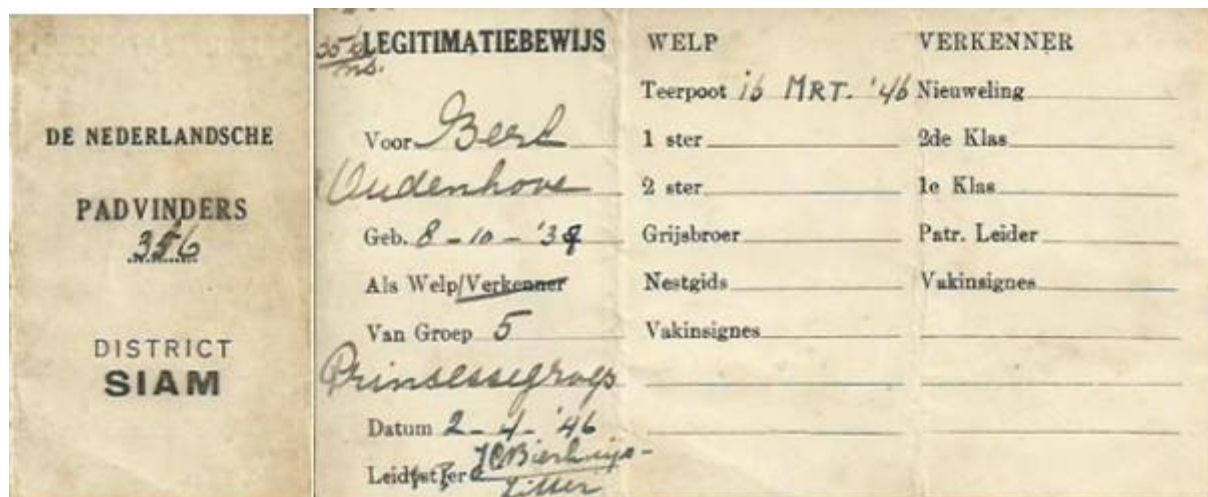 DE NEDERLANDSCHE
PADVINDERS
356
DISTRICT
SIAM
356
ms.
LEGITIMATIEBEWIJS
Voor Bert
Oudenhove
Geb. 8-10-'39
Als Welp/Verkenner
Van Groep 5
Prinsessegroep
Datum 2-4-'46
WELP
Teerpoot 16 MRT. '46
1 ster
2 ster
Grijsbroer
Nestgids
Vakinsignes
VERKENNER
Nieuweling
2de Klas
1e Klas
Patr. Leider
Vakinsignes